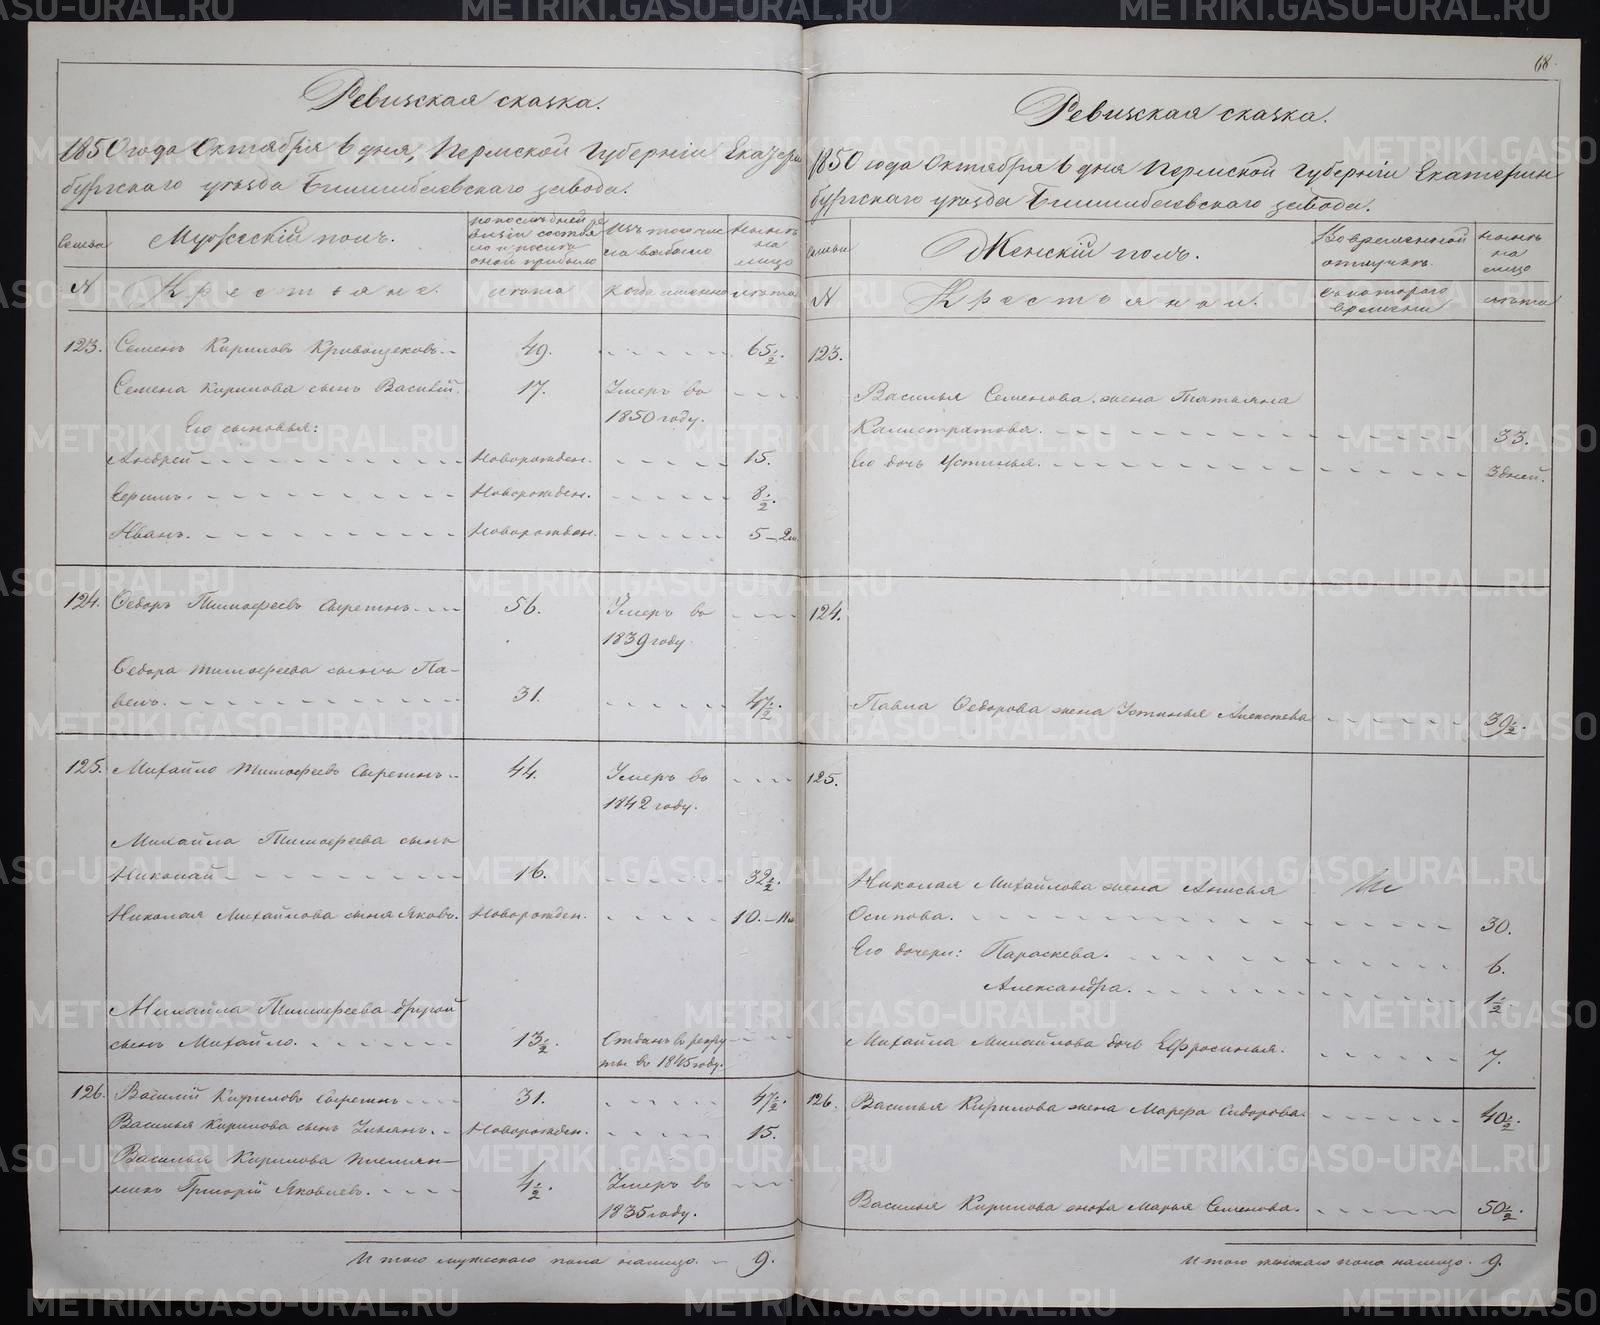 68.
Ревизская сказка.
1850 года Октября 6 дня, Пермской Губерніи Екатерин
бургскаго уѣзда Билимбаевскаго завода.
Семьи
Мужескій полъ.
по послѣдней ре
визіи состоя
ло и послѣ
оной прибыло
Изъ того чис
ла выбыло
Нынѣ
на
лицо
N
Крестьяне.
лѣта
Когда именно
лѣта
123. Семенъ Кириловъ Кривощековъ. 49. 65½.
Семена Кирилова сынъ Василій. 17. Умеръ въ
1850 году.
Его сыновья:
Андрей Новорожден. 15.
Новорожден. 8½.
Иванъ. Новорожден. 5 – 2м.
124. Федоръ Тимофеевъ Сыретинъ. 56. Умеръ въ
1839 году.
Федора Тимофеева сынъ Па-
велъ. 31. 47½.
125. Михайло Тимофеевъ Сыретинъ. 44. Умеръ въ
1842 году.
Михайла Тимофеева сынъ
Николай 16. 32½.
Николая Михайлова сынъ Яковъ. Новорожден. 10. – 11м
Михайла Тимофеева другой
сынъ Михайло. 13½. Отданъ въ рекру
ты въ 1845 году.
126. Василій Кириловъ Сыретинъ 31. 47½.
Василья Кирилова сынъ Ульянъ. Новорожден. 15.
Василья Кирилова племян-
никъ Григорій Яковлевъ. 4½. Умеръ въ
1835 году.
Итого мужескаго пола налицо. 9.
Ревизская сказка.
1850 года Октября 6 дня Пермской Губерніи Екатерин
бургскаго уѣзда Билимбаевскаго завода.
Семьи
Женскій полъ.
Во временной
отлучкѣ.
Нынѣ
на
лицо
N
Крестьянки.
Съ котораго
времени
лѣта
123.
Василья Семенова жена Татьяна
Калистратова. 33.
Его дочь Устинья. 3 дней.
124.
Павла Федорова жена Устинья Алексѣева 39½.
125.
Николая Михайлова жена Анисья
Осипова. 30.
Его дочери: Параскева. 6.
Александра. 1½.
Михайла Михайлова дочь Ефросинья. 7.
126. Василья Кирилова жена Марфа Сидорова. 40½.
Василья Кирилова сноха Марья Семенова. 50½.
Итого женскаго пола налицо. 9.
METRIKI.GASO-URAL.RU